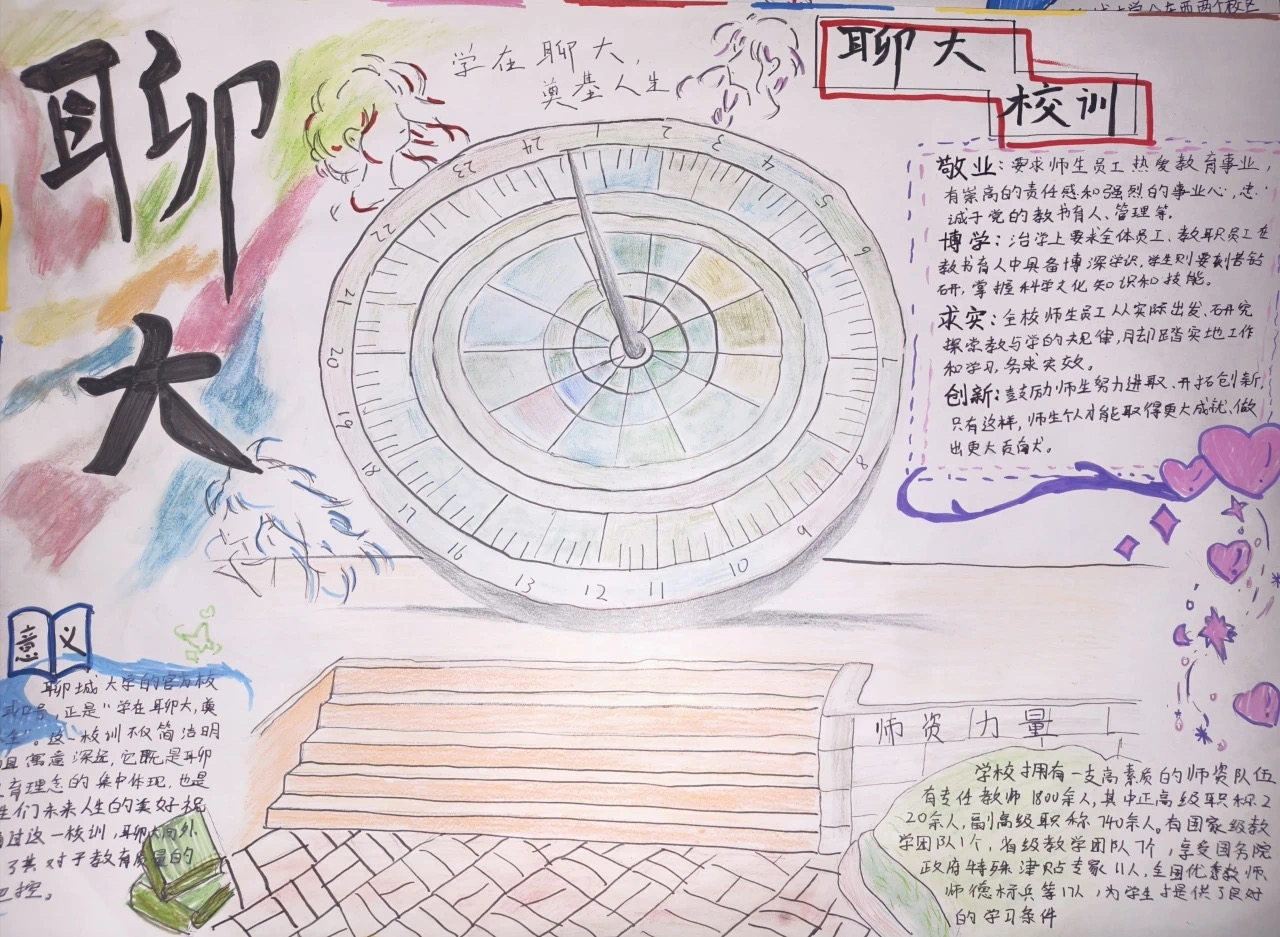 聊大
学在聊大，
奠基人生
聊大
校训
敬业：要求师生员工热爱教育事业，
有崇高的责任感和强烈的事业心，忠
诚于党的教书育人、管理等。
博学：治学上要求全体员工、教职员工在
教书育人中具备博深学识，学生则要刻苦钻
研，掌握科学文化知识和技能。
求实：全校师生员工从实际出发、研究
探索教与学的规律，脚踏实地工作
和学习，务求实效。
创新：鼓励师生努力进取、开拓创新，
只有这样，师生个人才能取得更大成就、做
出更大贡献。
24 1 2 3 4 5 6 7 8 9 10 11 12 13 16 17 18 19 20 21 22 23
意义
聊城大学的官方校
口号，正是“学在聊大，奠
”。这一校训不仅简洁明
且寓意深远，它既是聊
育理念的集中体现，也是
生们未来人生的美好祝
过这一校训，聊大向外
了其对于教育质量的
把控。
师资力量
学校拥有一支高素质的师资队伍
有专任教师1800余人，其中正高级职称2
20余人，副高级职称740余人。有国家级教
学团队1个，省级教学团队7个，享受国务院
政府特殊津贴专家11人，全国优秀教师、
师德标兵等17人，为学生提供了良好
的学习条件